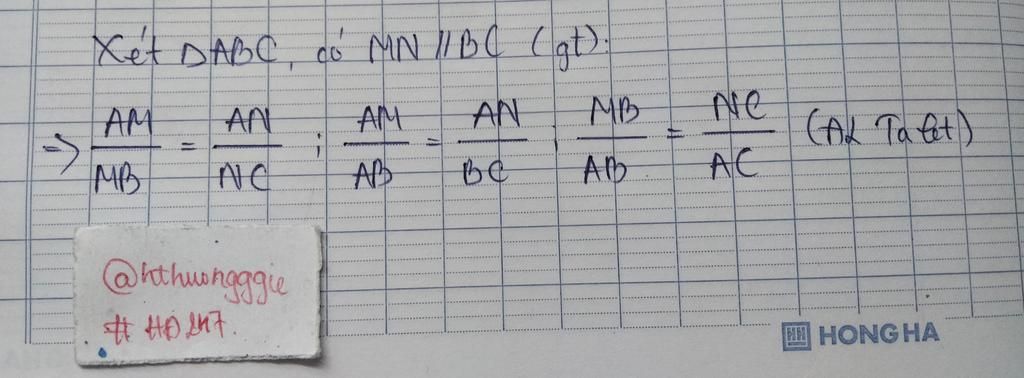 Xét ΔABC, có MN // BC (gt):
=> AM/MB = AN/NC ; AM/AB = AN/BC ; MB/AB = NC/AC (ĐL Ta lét)
@hthuongggie
# HD247.
HH HONG HA